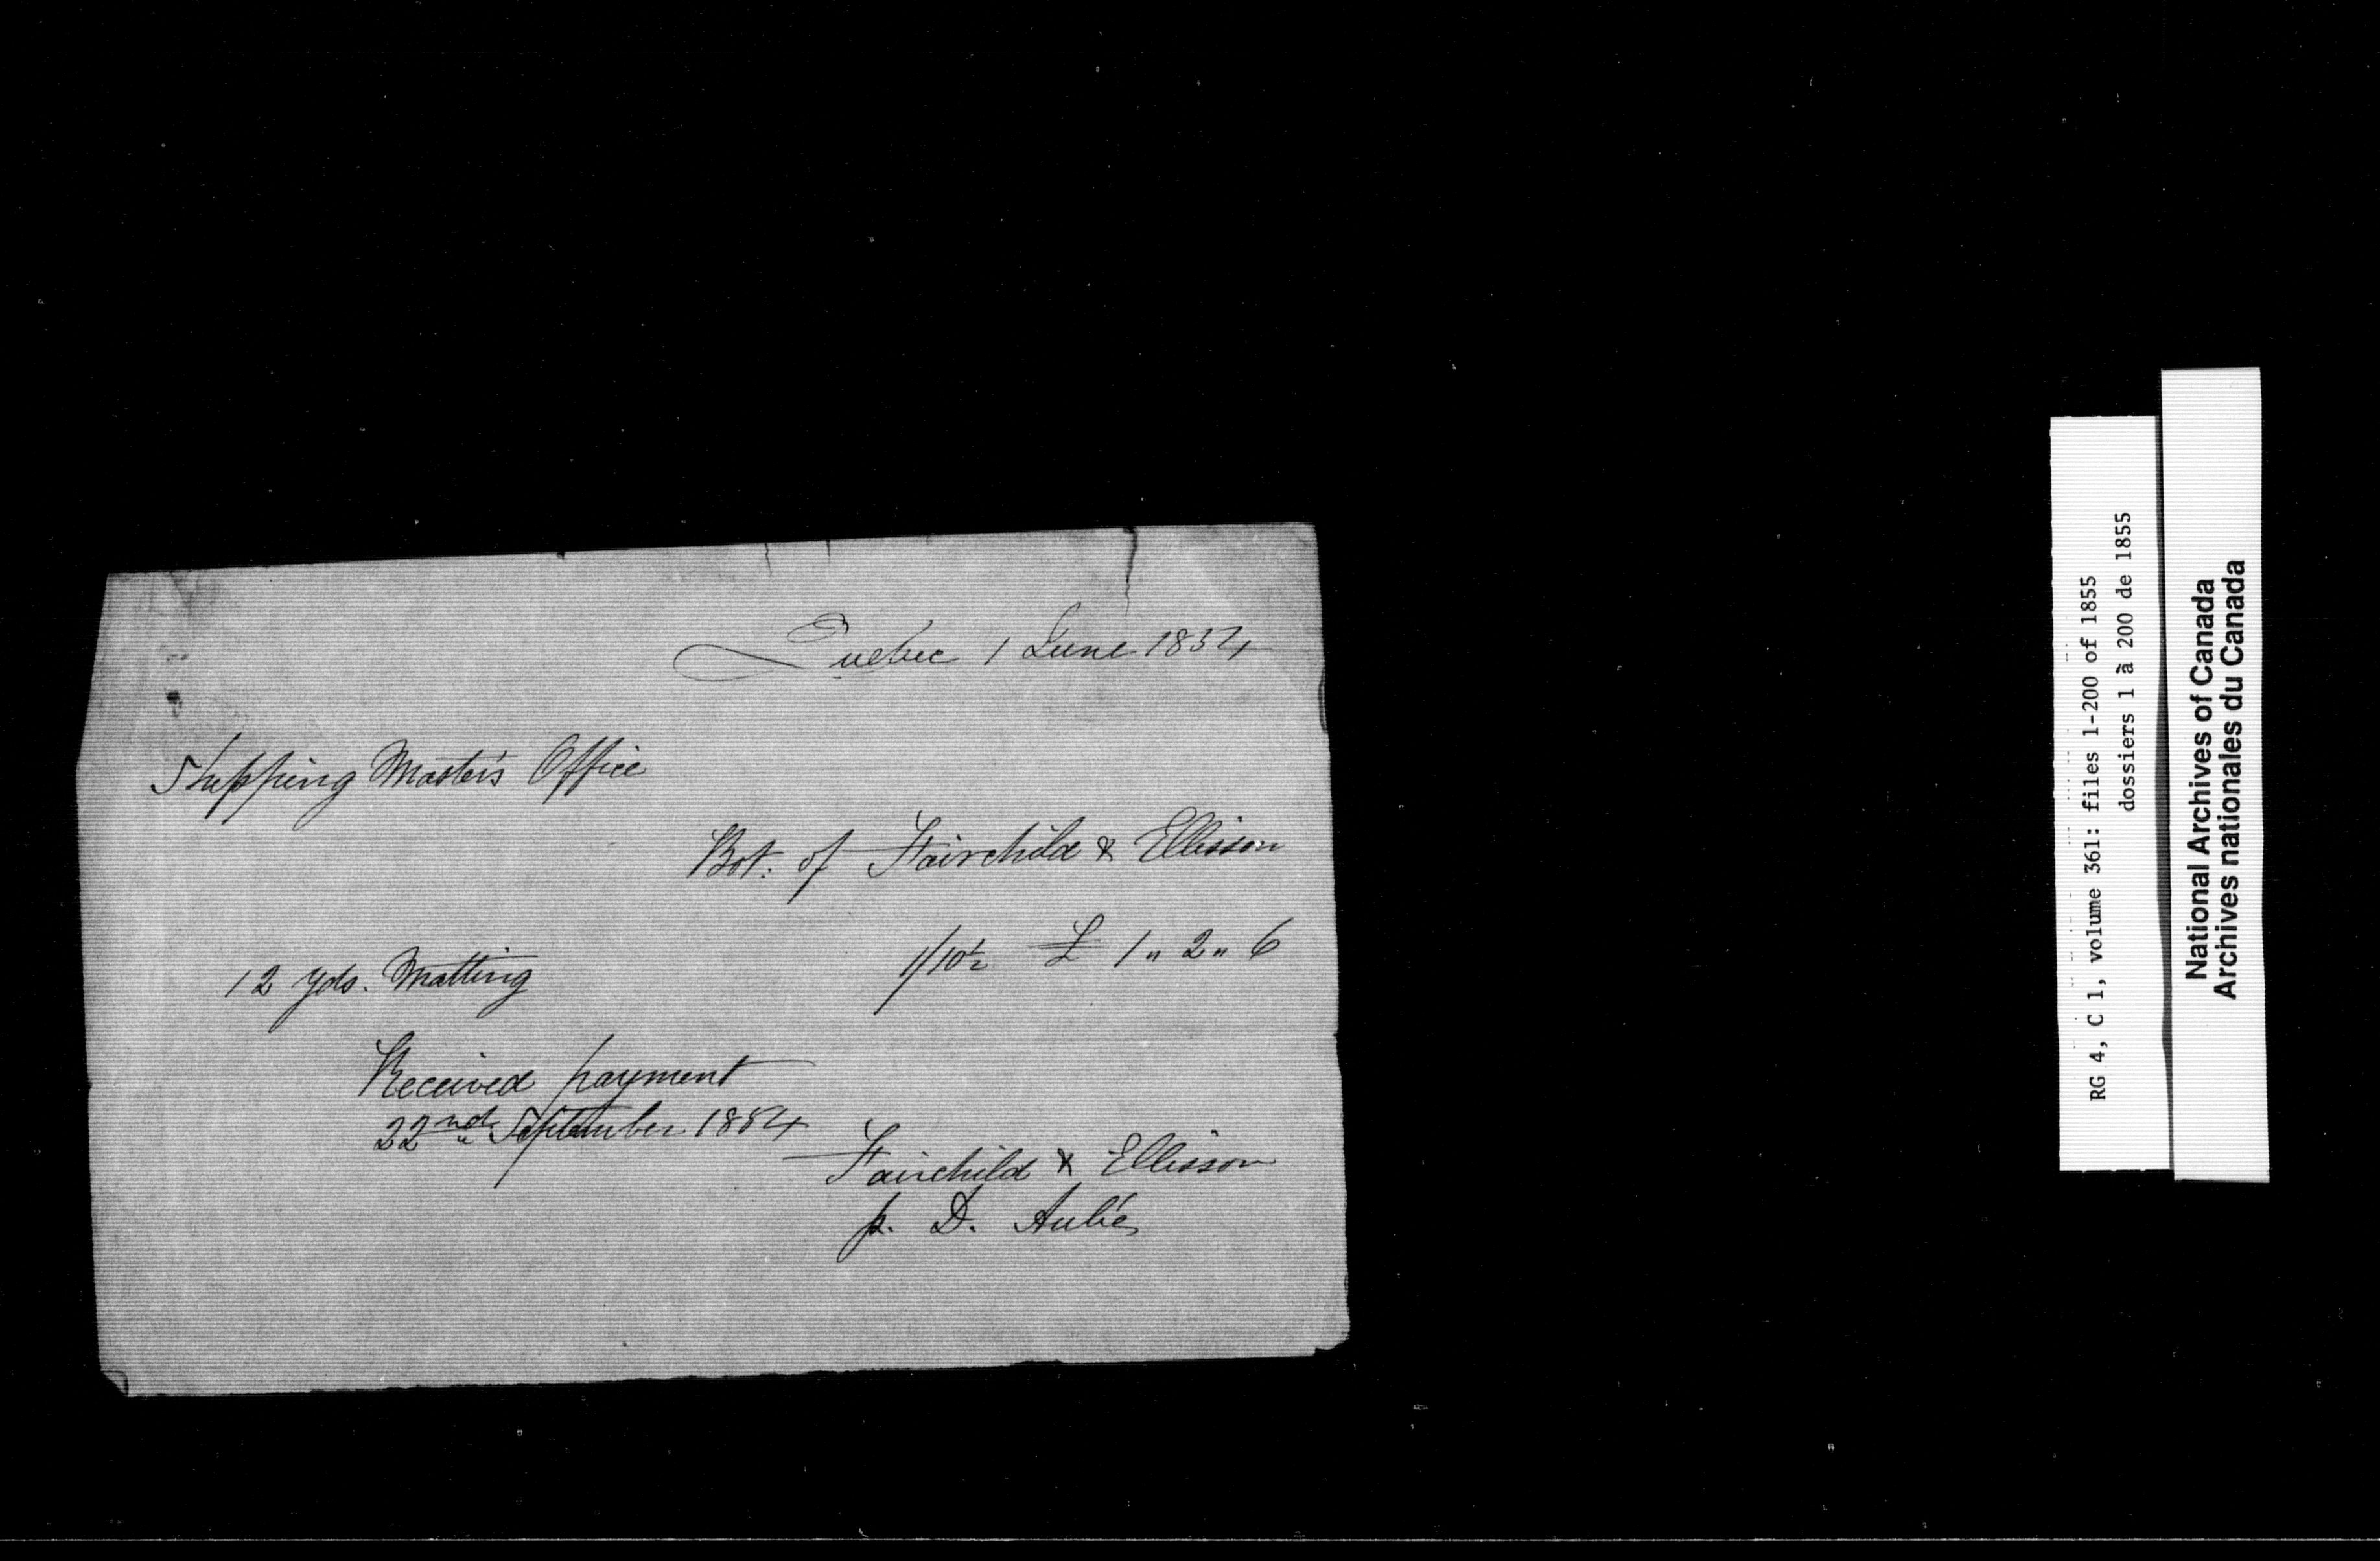 Quebec 1 June 1854
Shipping Master's Office
Bot: of Fairchild & Ellisson
12 yds. Matting 1/10½ £ 1 " 2 " 6
Received payment
22nd September 1854
Fairchild & Ellisson
p. D. Aubé
RG 4, C 1, volume 361: files 1-200 of 1855
dossiers 1 à 200 de 1855
National Archives of Canada
Archives nationales du Canada